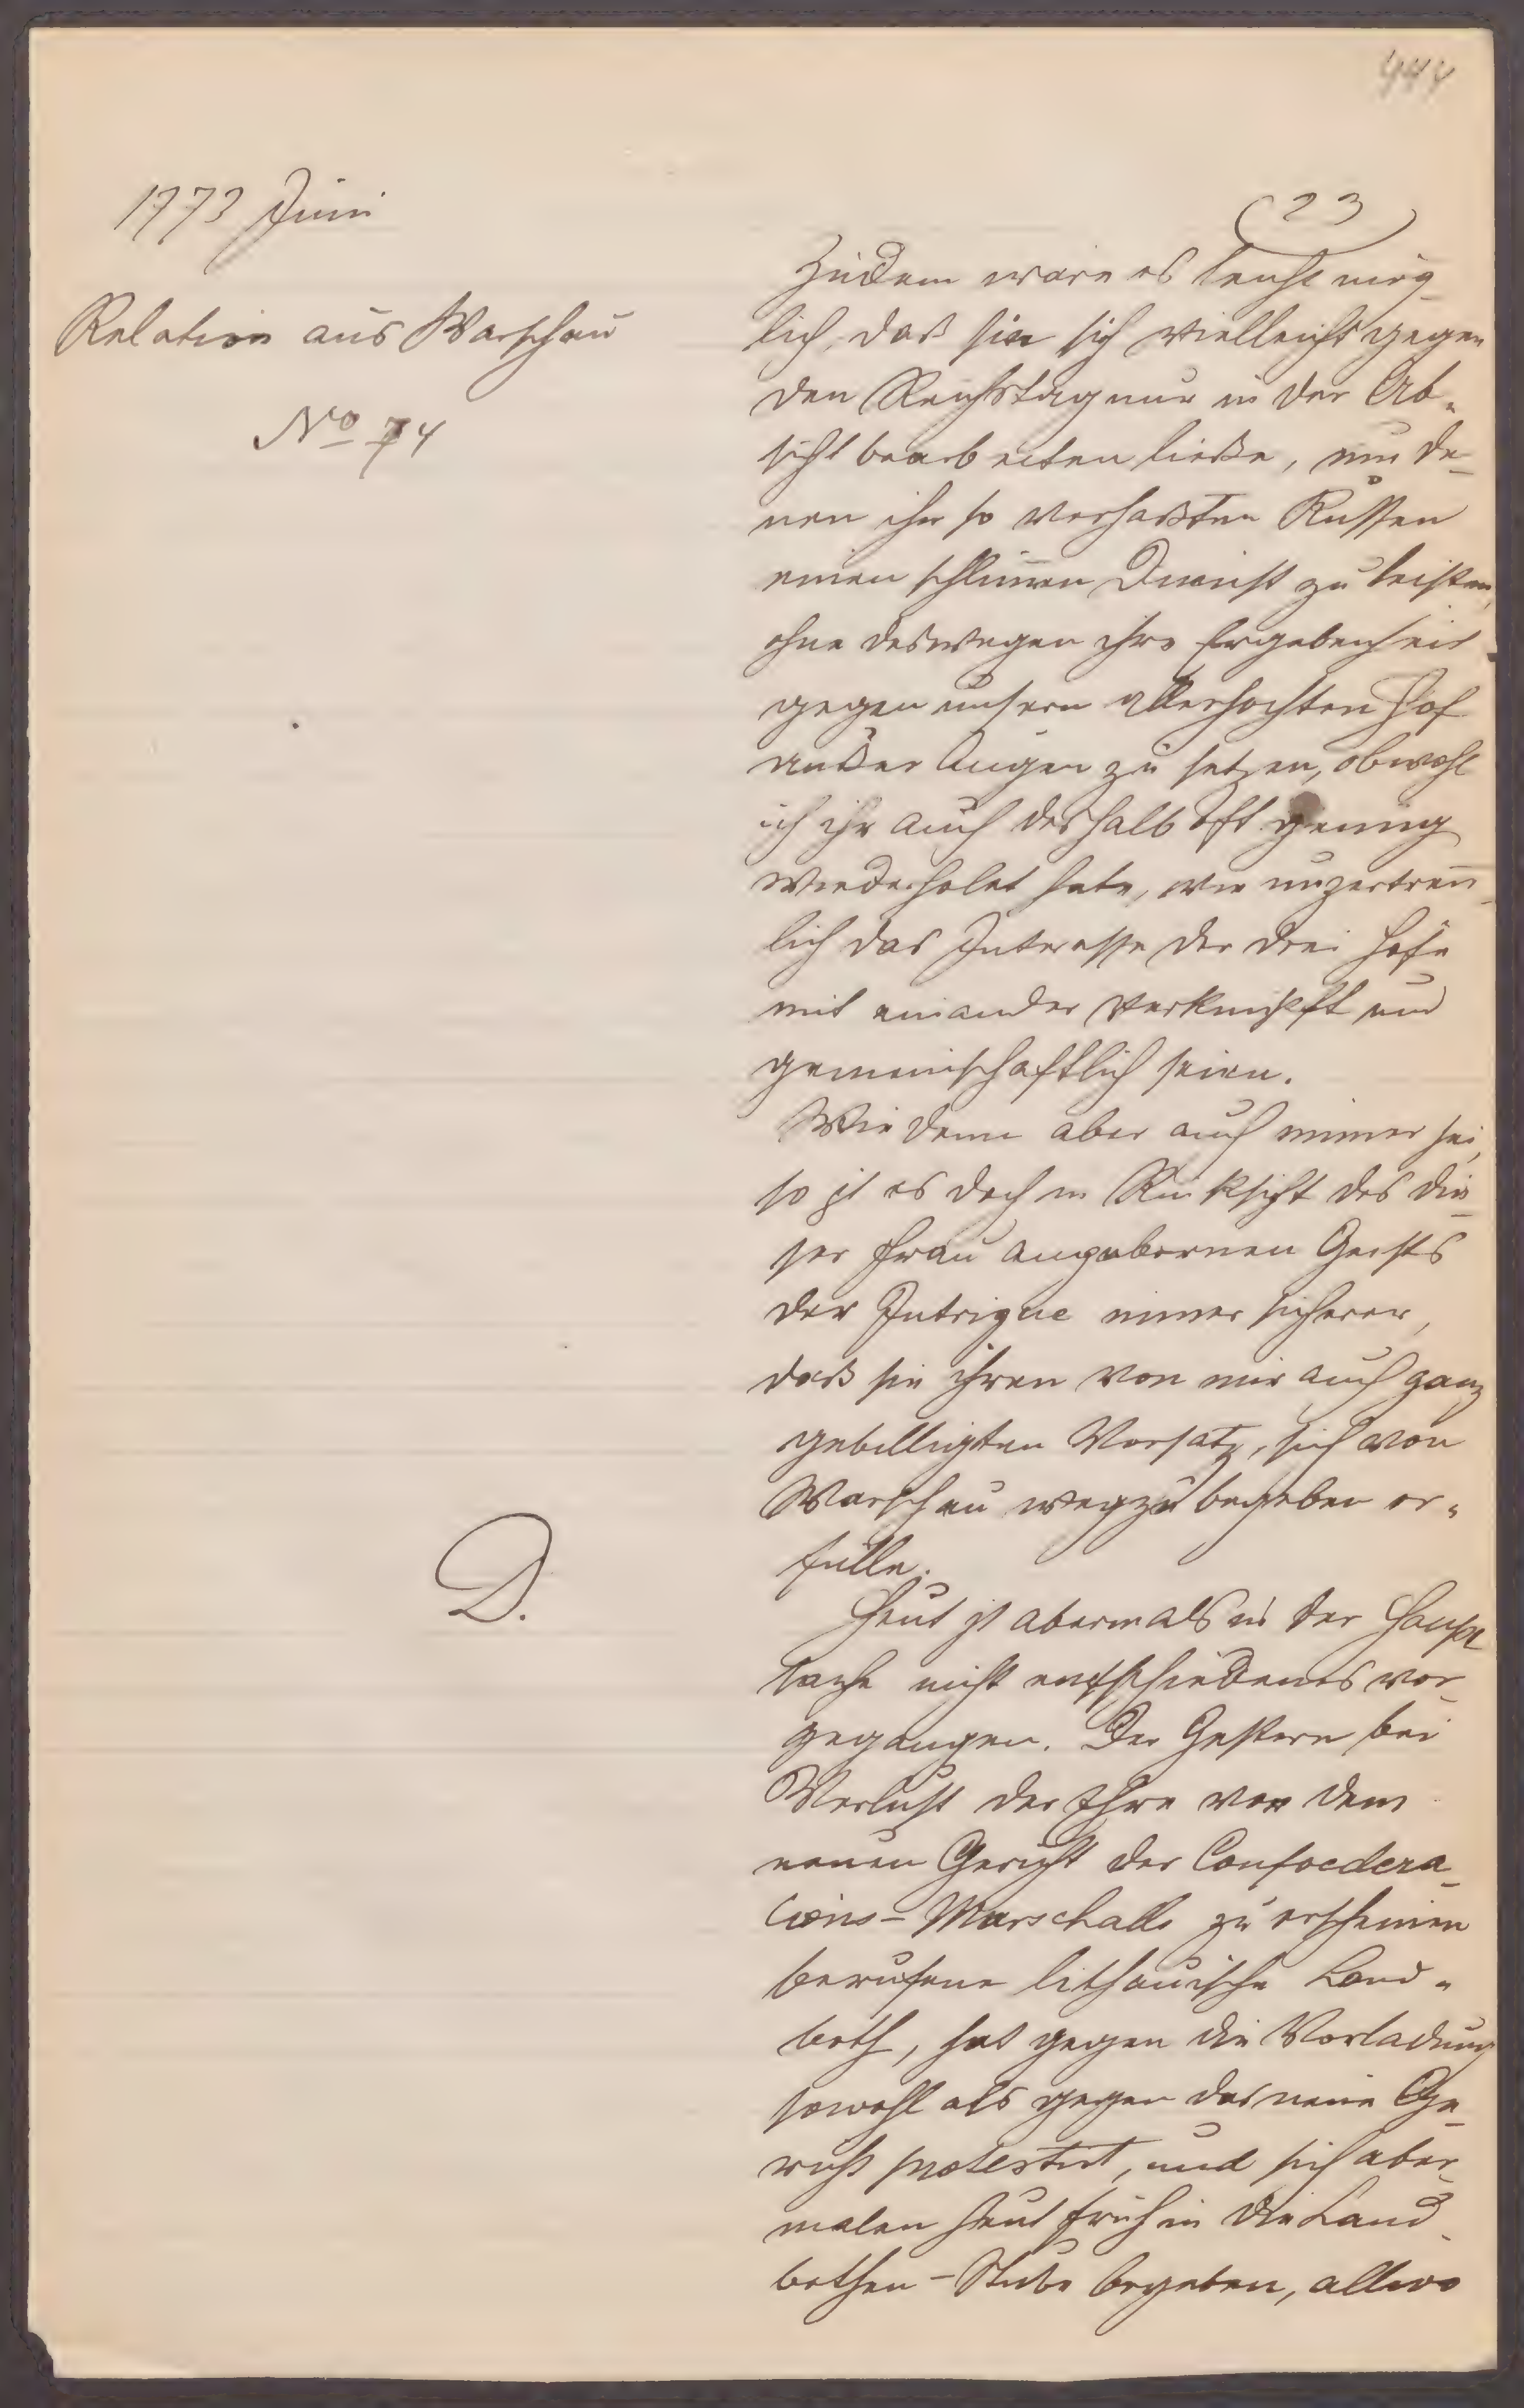 444
1773 Juni
Relation aus Warschau
No 74
D.
(23)
Zudem wäre es leicht mög-
lich, daß sie sich vielleicht gegen
den Reichstag nur in der Ab-
sicht bearbeiten ließe, um de-
nen ihr so verhaßten Russen
einen schlim̄en Dienst zu leisten,
ohne deswegen ihre Ergebenheit
gegen unsern allerhöchsten Hof
außer Augen zu setzen, obwohl
ich ihr auch deshalb oft genug
wiederholet habe, wie unzertren̄-
lich das Interesse der drei Höfe
mit einander verknüpft und
gemeinschaftlich seien.
Wie denn aber auch immer sei,
so ist es doch in Rücksicht des die-
ser Frau angebornen Geists
der Intrigue immer sicherer,
daß sie ihren von mir auch ganz
gebilligten Vorsatz, sich von
Warschau wegzubegeben er-
fülle.
Heut ist abermals in der Haupt
sache nicht entschiedenes vor-
gegangen. Der Gestern bei
Verlust der Ehre vor dem
neuen Gericht der Confoedera-
tions-Marschalls zu erscheinen
berufene lithauische Land-
both, hat gegen die Vorladung
sowohl als gegen das neue Ge-
richt protestirt, und sich aber-
malen heut früh in die Land-
bothen-Stube begeben, allwo